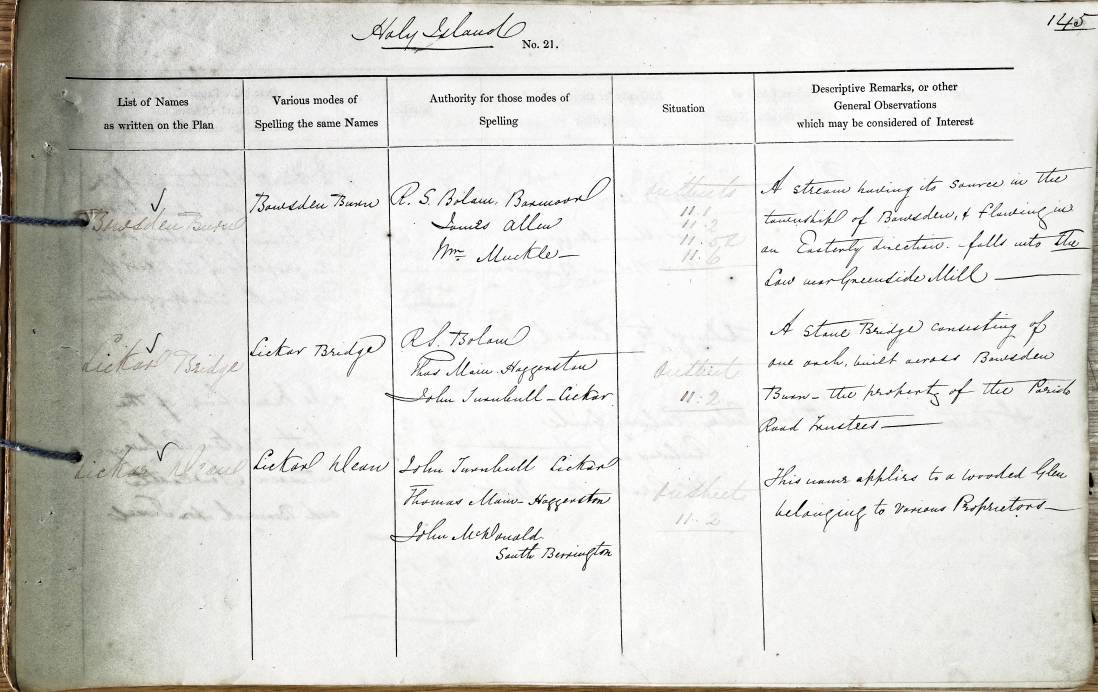 145
Holy Island
No. 21.
List of Names
as written on the Plan
Various modes of
Spelling the same Names
Authority for those modes of
Spelling
Situation
Descriptive Remarks, or other
General Observations
which may be considered of Interest
Bowsden Burn
Bowsden Burn
R. S. Bolam. Barmoor
James Allen
Wm. Muckle
11.1
11.2
11.6
A stream having its source in the
township of Bowsden, & flowing in
an Easterly direction. - falls into The
Low near Greenside Mill
Lickar Bridge
Lickar Bridge
R S. Bolam
Thos Main Haggerston
John Turnbull - Lickar
11.2
A stone Bridge consisting of
one arch, built across Bowsden
Burn - the property of the Parish
Road Trustees
Lickar Dean
Lickar Dean
John Turnbull Lickar
Thomas Main - Haggerston
John McDonald
South Berrington
11.2
This name applies to a wooded Glen
belonging to various Proprietors